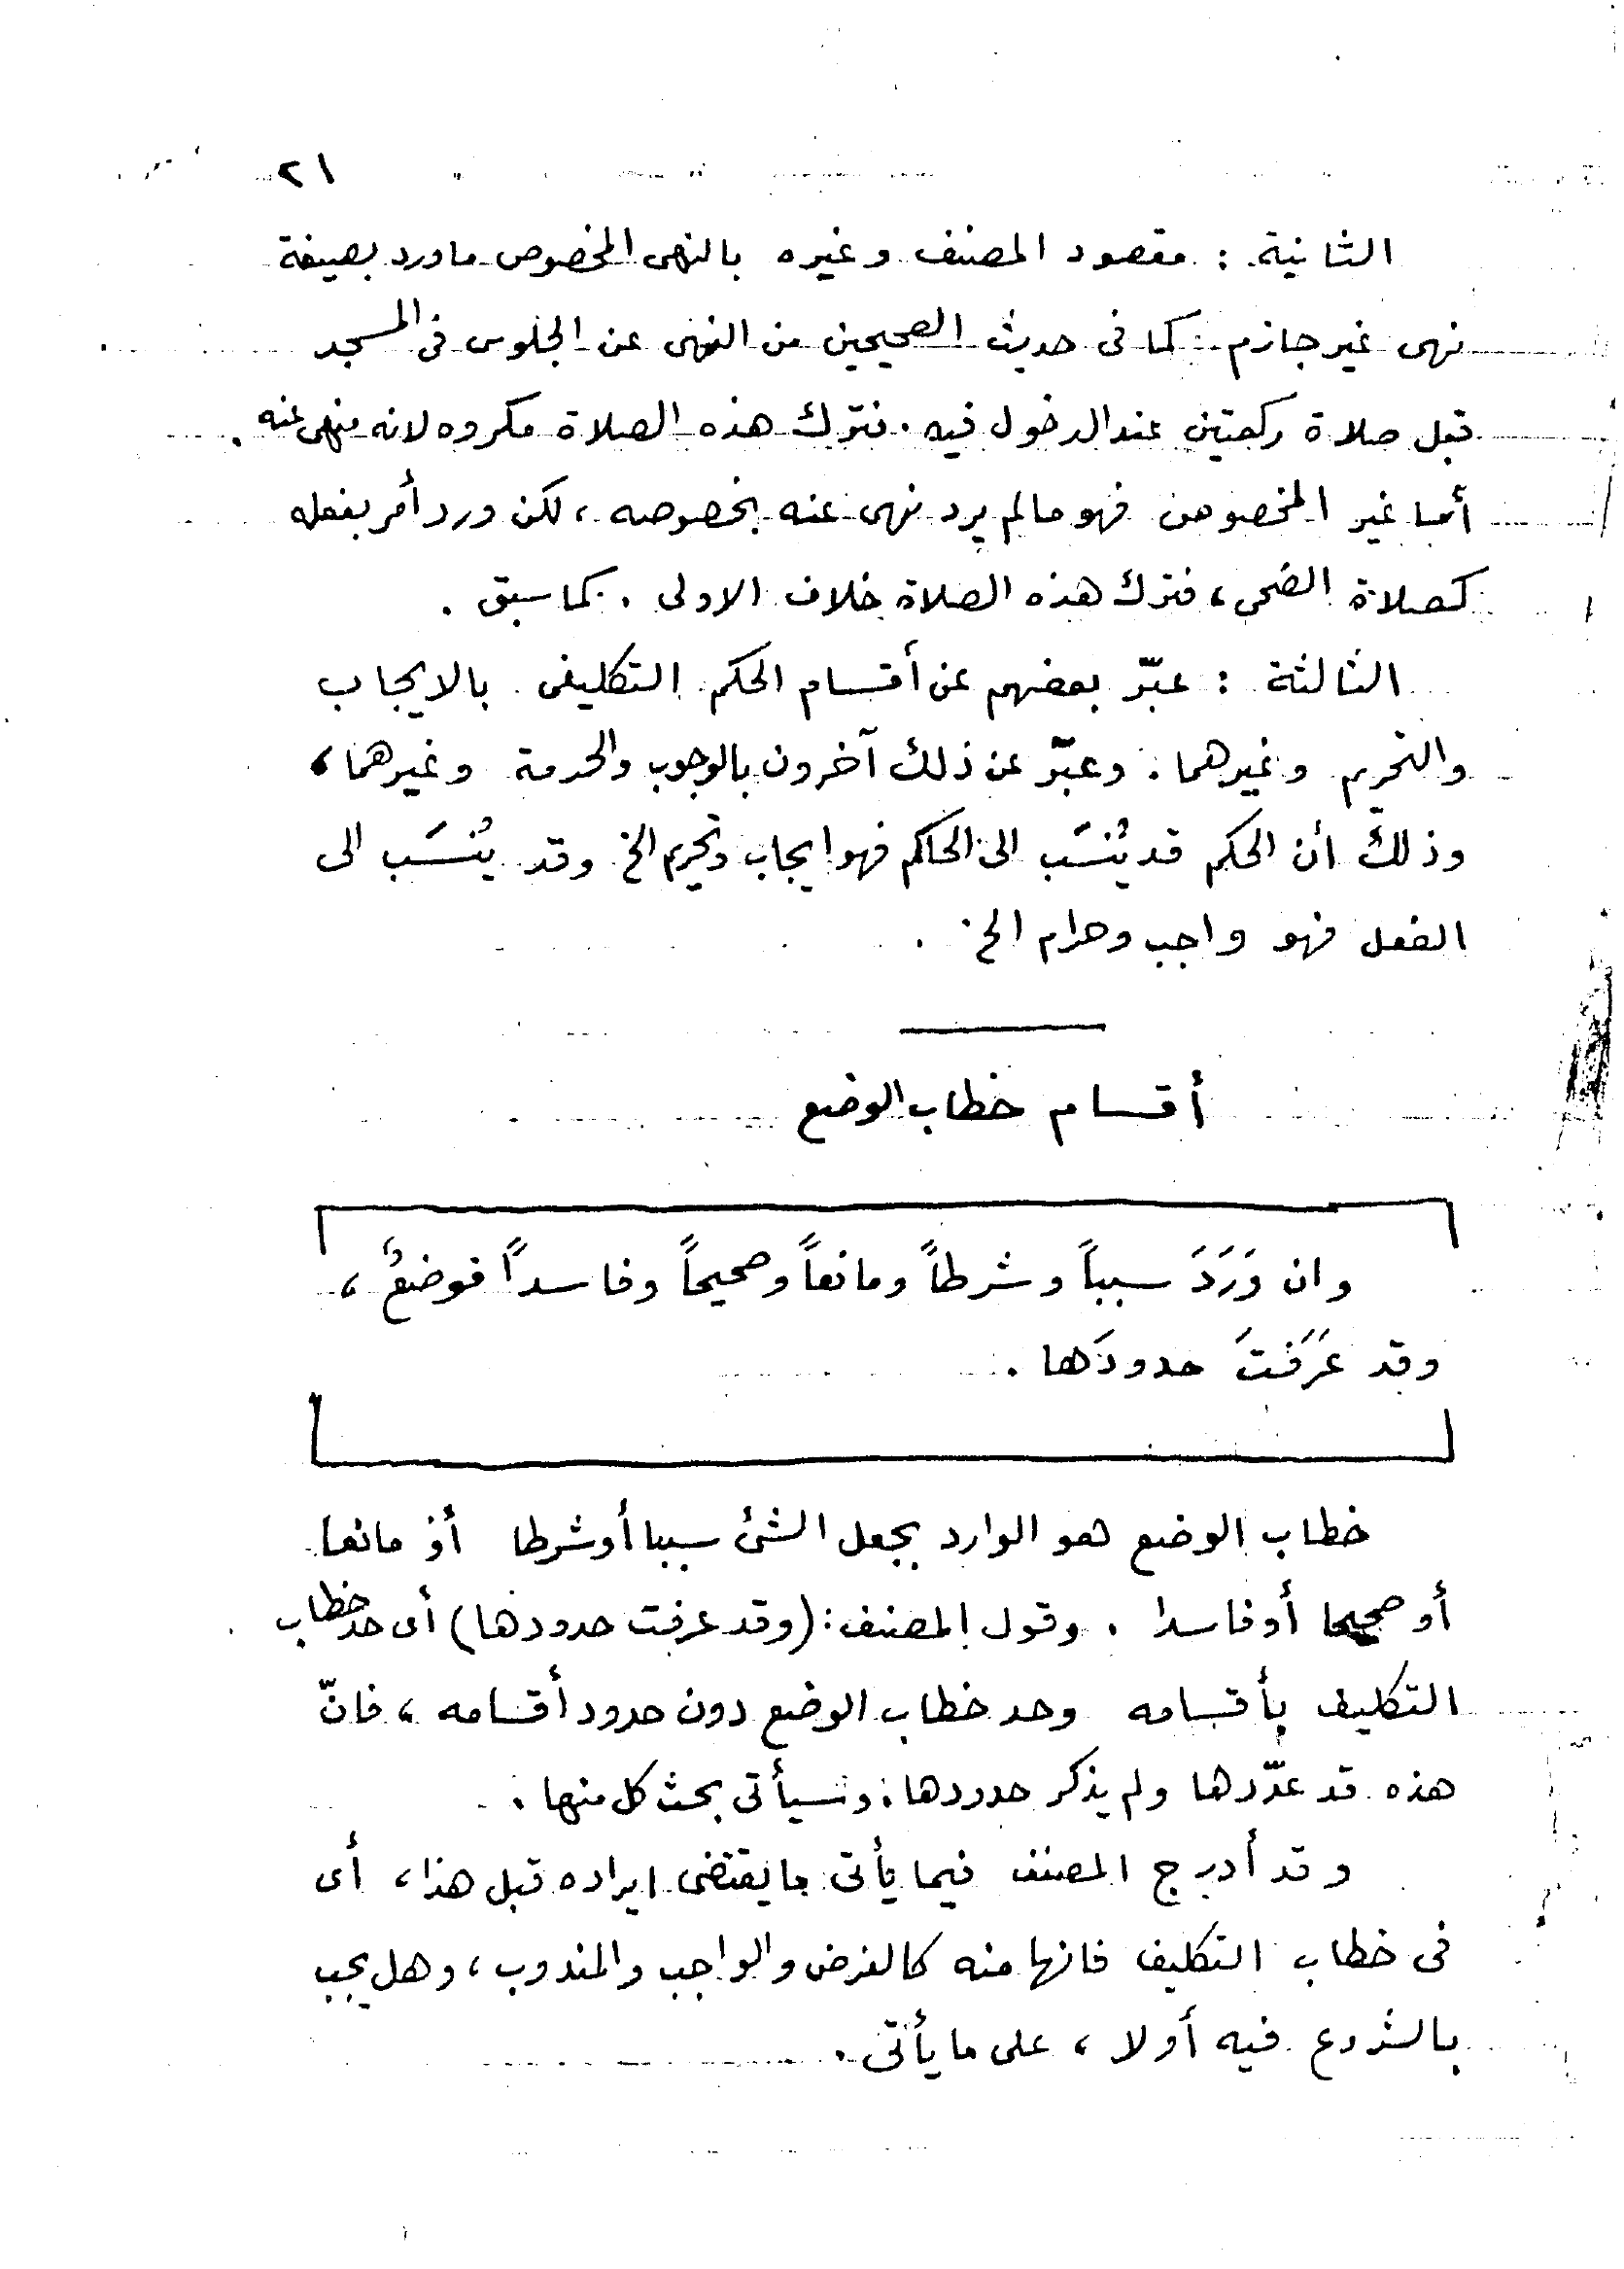 ٢١
الثانية : مقصود المصنف وغيره بالنهى المخصوص ما ورد بصيغة
نهى غير جازم . كما فى حديث الصحيحين من النهى عن الجلوس فى المسجد
قبل صلاة ركعتين عند الدخول فيه . فترك هذه الصلاة مكروه لانه منهى عنه .
أما غير المخصوص فهو مالم يرد نهى عنه بخصوصه ، لكن ورد أمر بفعله
كصلاة الضحى ، فترك هذه الصلاة خلاف الاولى . كما سبق .
الثالثة : عبّر بعضهم عن أقسام الحكم التكليفى بالايجاب
والتحريم وغيرهما . وعبّر عن ذلك آخرون بالوجوب والحرمة وغيرهما ،
وذلك أن الحكم قد يُنسَب الى الحاكم فهو ايجاب وتحريم الخ وقد يُنسَب الى
الفعل فهو واجب وحرام الخ .
أقسام خطاب الوضع
وان وَرَدَ سبباً وشرطاً ومانعاً وصحيحاً وفاسداً فوضعٌ ،
وقد عَرَفتَ حدودَها .
خطاب الوضع هو الوارد بجعل الشئ سببا أو شرطا أو مانعا
أو صحيحا أو فاسدا . وقول المصنف : (وقد عرفت حدودها) أى حد خطاب
التكليف بأقسامه وحد خطاب الوضع دون حدود أقسامه ، فانّ
هذه قد عدّدها ولم يذكر حدودها . وسيأتى بحث كل منها .
وقد أدرج المصنف فيما يأتى ما يقتضى ايراده قبل هذا ، أى
فى خطاب التكليف فانها منه كالفرض والواجب والمندوب ، وهل يجب
بالشروع فيه أولا ، على ما يأتى .